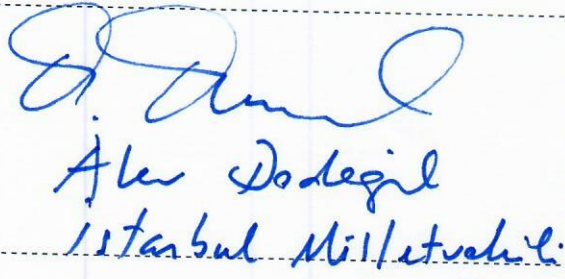 Alev Dedegil
istanbul Milletvekili